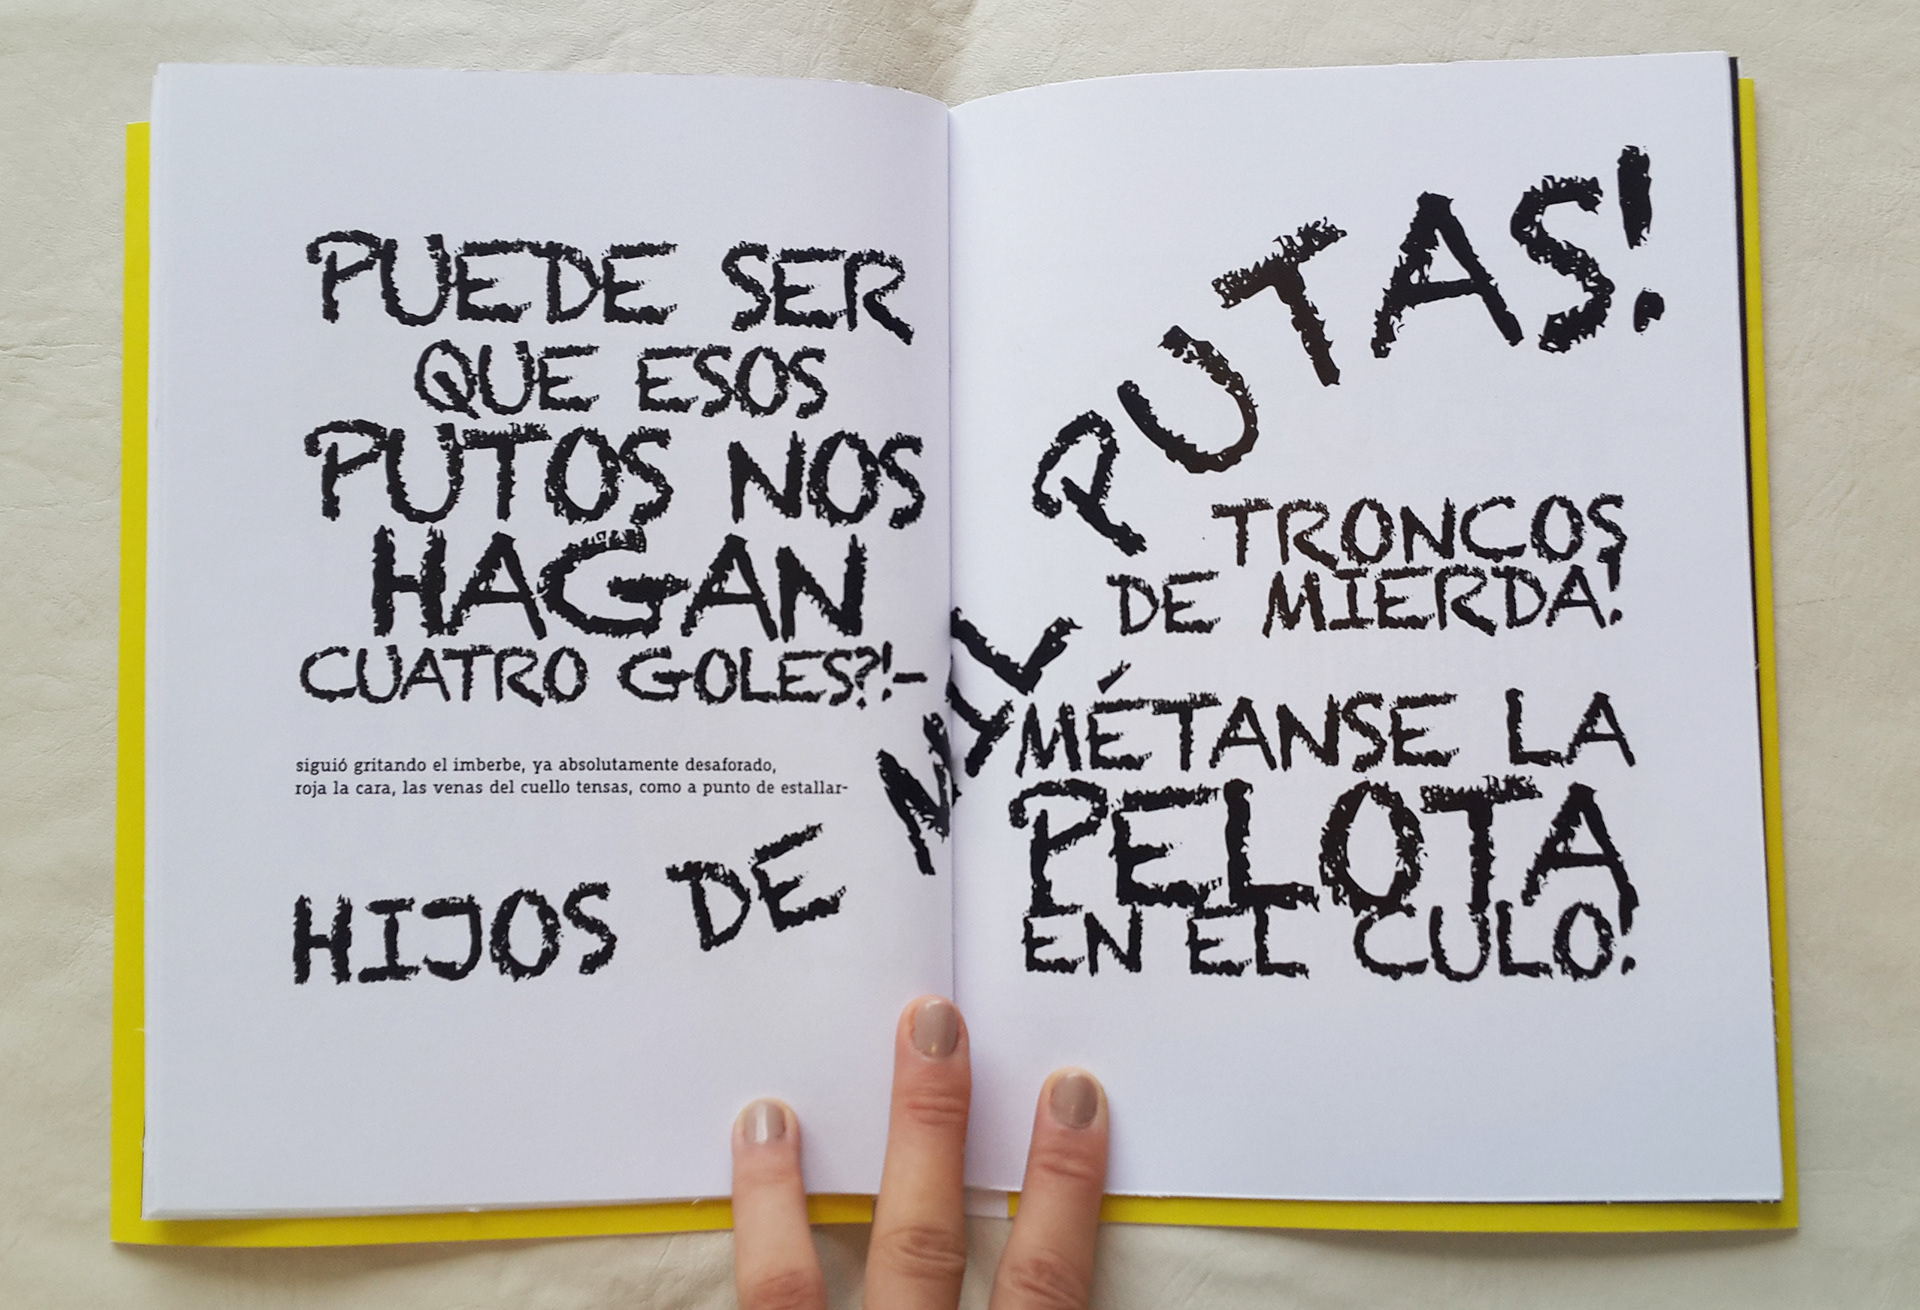 PUEDE SER
QUE ESOS
PUTOS NOS
HAGAN
CUATRO GOLES?!-
siguió gritando el imberbe, ya absolutamente desaforado,
roja la cara, las venas del cuello tensas, como a punto de estallar-
HIJOS DE MIL PUTAS!
TRONCOS
DE MIERDA!
MÉTANSE LA
PELOTA
EN EL CULO!